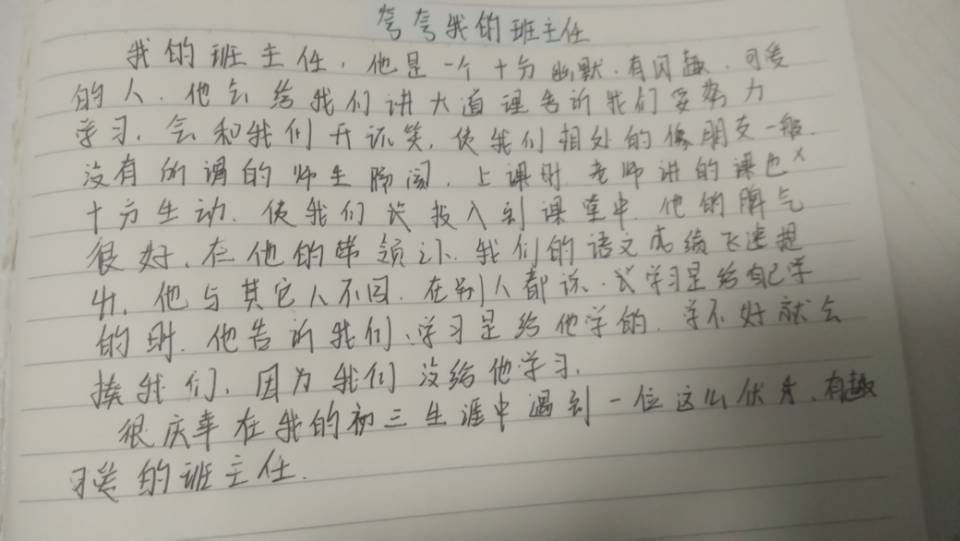 夸夸我的班主任
我的班主任，他是一个十分幽默、有风趣、可爱
的人、他会给我们讲大道理告诉我们要努力
学习，会和我们开玩笑，使我们相处的像朋友一般.
没有所谓的师生隔阂，上课时 老师讲的课也
十分生动、使我们 投入到课堂中、他的脾气
很好、在他的带领下、我们的语文成绩飞速提
升，他与其它人不同、在别人都说、学习是给自己学
的时、他告诉我们、学习是给他学的、学不好就会
揍我们、因为我们没给他学习.
很庆幸在我的初三生涯中遇到一位这么优秀、有趣
可爱的班主任.